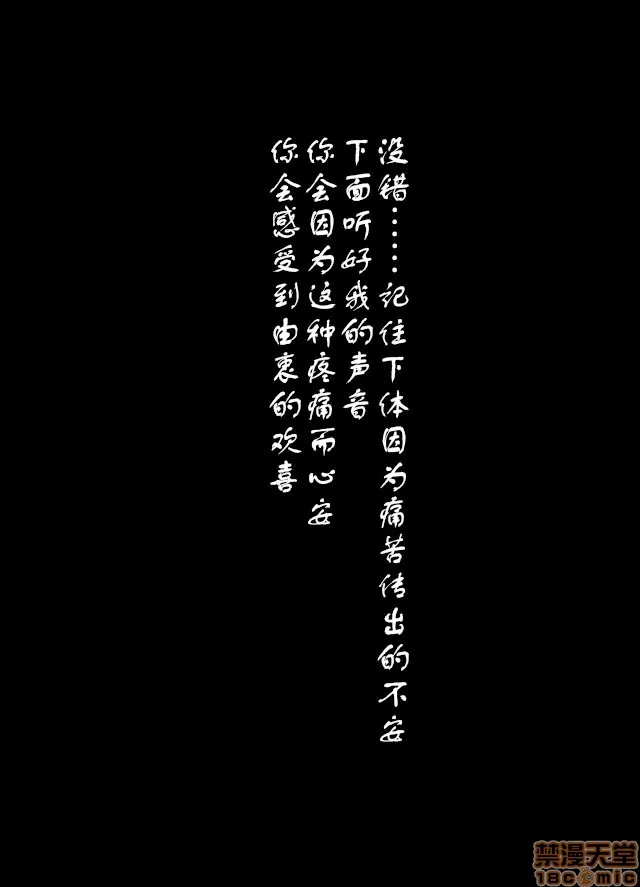 没错……记住下体因为痛苦传出的不安
下面听好我的声音
你会因为这种疼痛而心安
你会感受到由衷的欢喜
禁漫天堂
18comic